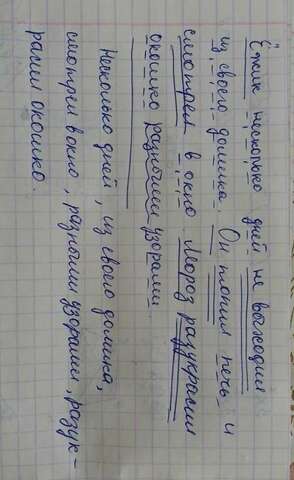 Ёжик несколько дней не выходил
из своего домика. Он топил печь и
смотрел в окно. Мороз разукрасил
окошко разными узорами.
Несколько дней, из своего домика,
смотрел в окно, разными узорами, разук-
расил окошко.